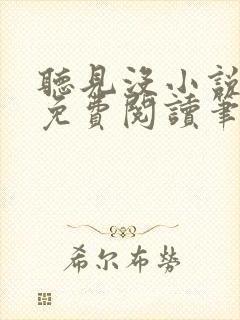 聽見没小說
免費閱讀筆
希尔布勞